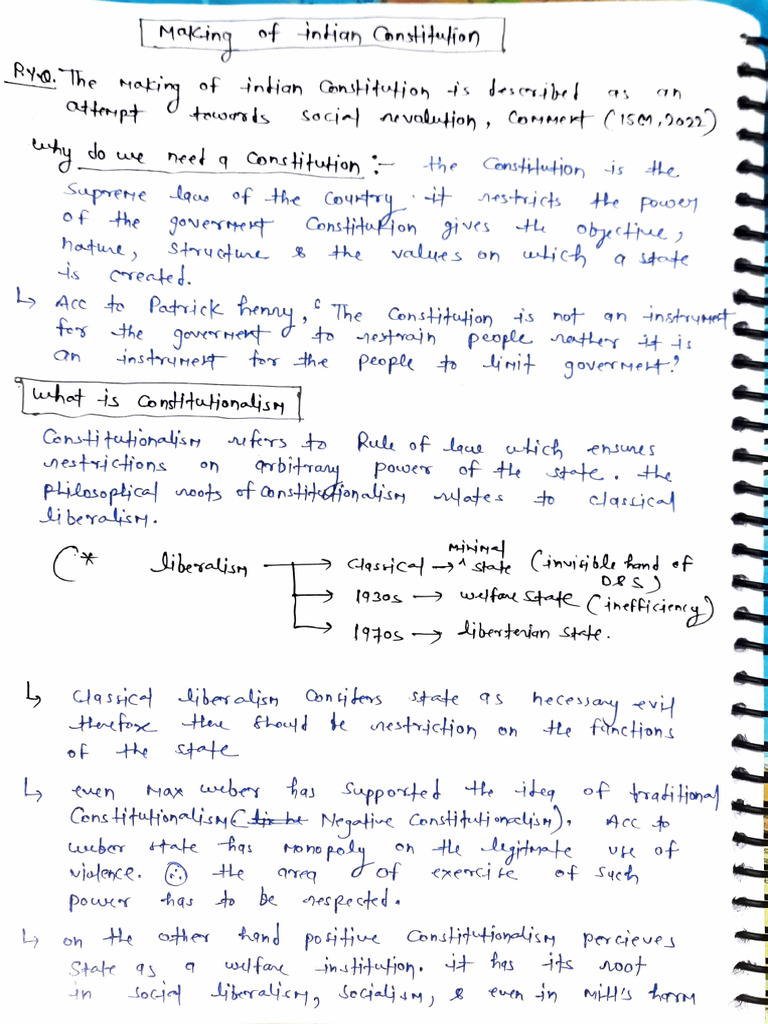 Making of Indian Constitution
P.Y.Q. The Making of Indian Constitution is described as an
attempt towards social revolution, comment (15M, 2022)
Why do we need a Constitution :- the Constitution is the
Supreme law of the Country. it restricts the power
of the goverment Constitution gives the objective,
nature, structure & the values on which a state
is created.
↳ Acc to Patrick henry, ‘The Constitution is not an instrument
for the goverment to restrain people rather it is
an instrument for the people to limit goverment’
What is Constitutionalism
Constitutionalism refers to Rule of law which ensures
restrictions on arbitrary power of the state. the
philosoptical roots of Constitutionalism relates to classical
liberalism.
(* liberalism → classical → minimal state (invisible hand of
D&S)
→ 1930s → welfare state (inefficiency)
→ 1970s → liberterian state.
↳ classical liberalism Considers state as necessary evil
therefore there should be restriction on the functions
of the state
↳ even Max weber has supported the idea of traditional
Constitutionalism (Negative Constitutionalism). Acc to
weber state has monopoly on the legitmate use of
violence. ∴ the area of exercise of such
power has to be respected.
↳ on the other hand positive Constitutionalism percieves
State as a welfare institution. it has its root
in social liberalism, socialism, & even in Mill's harm